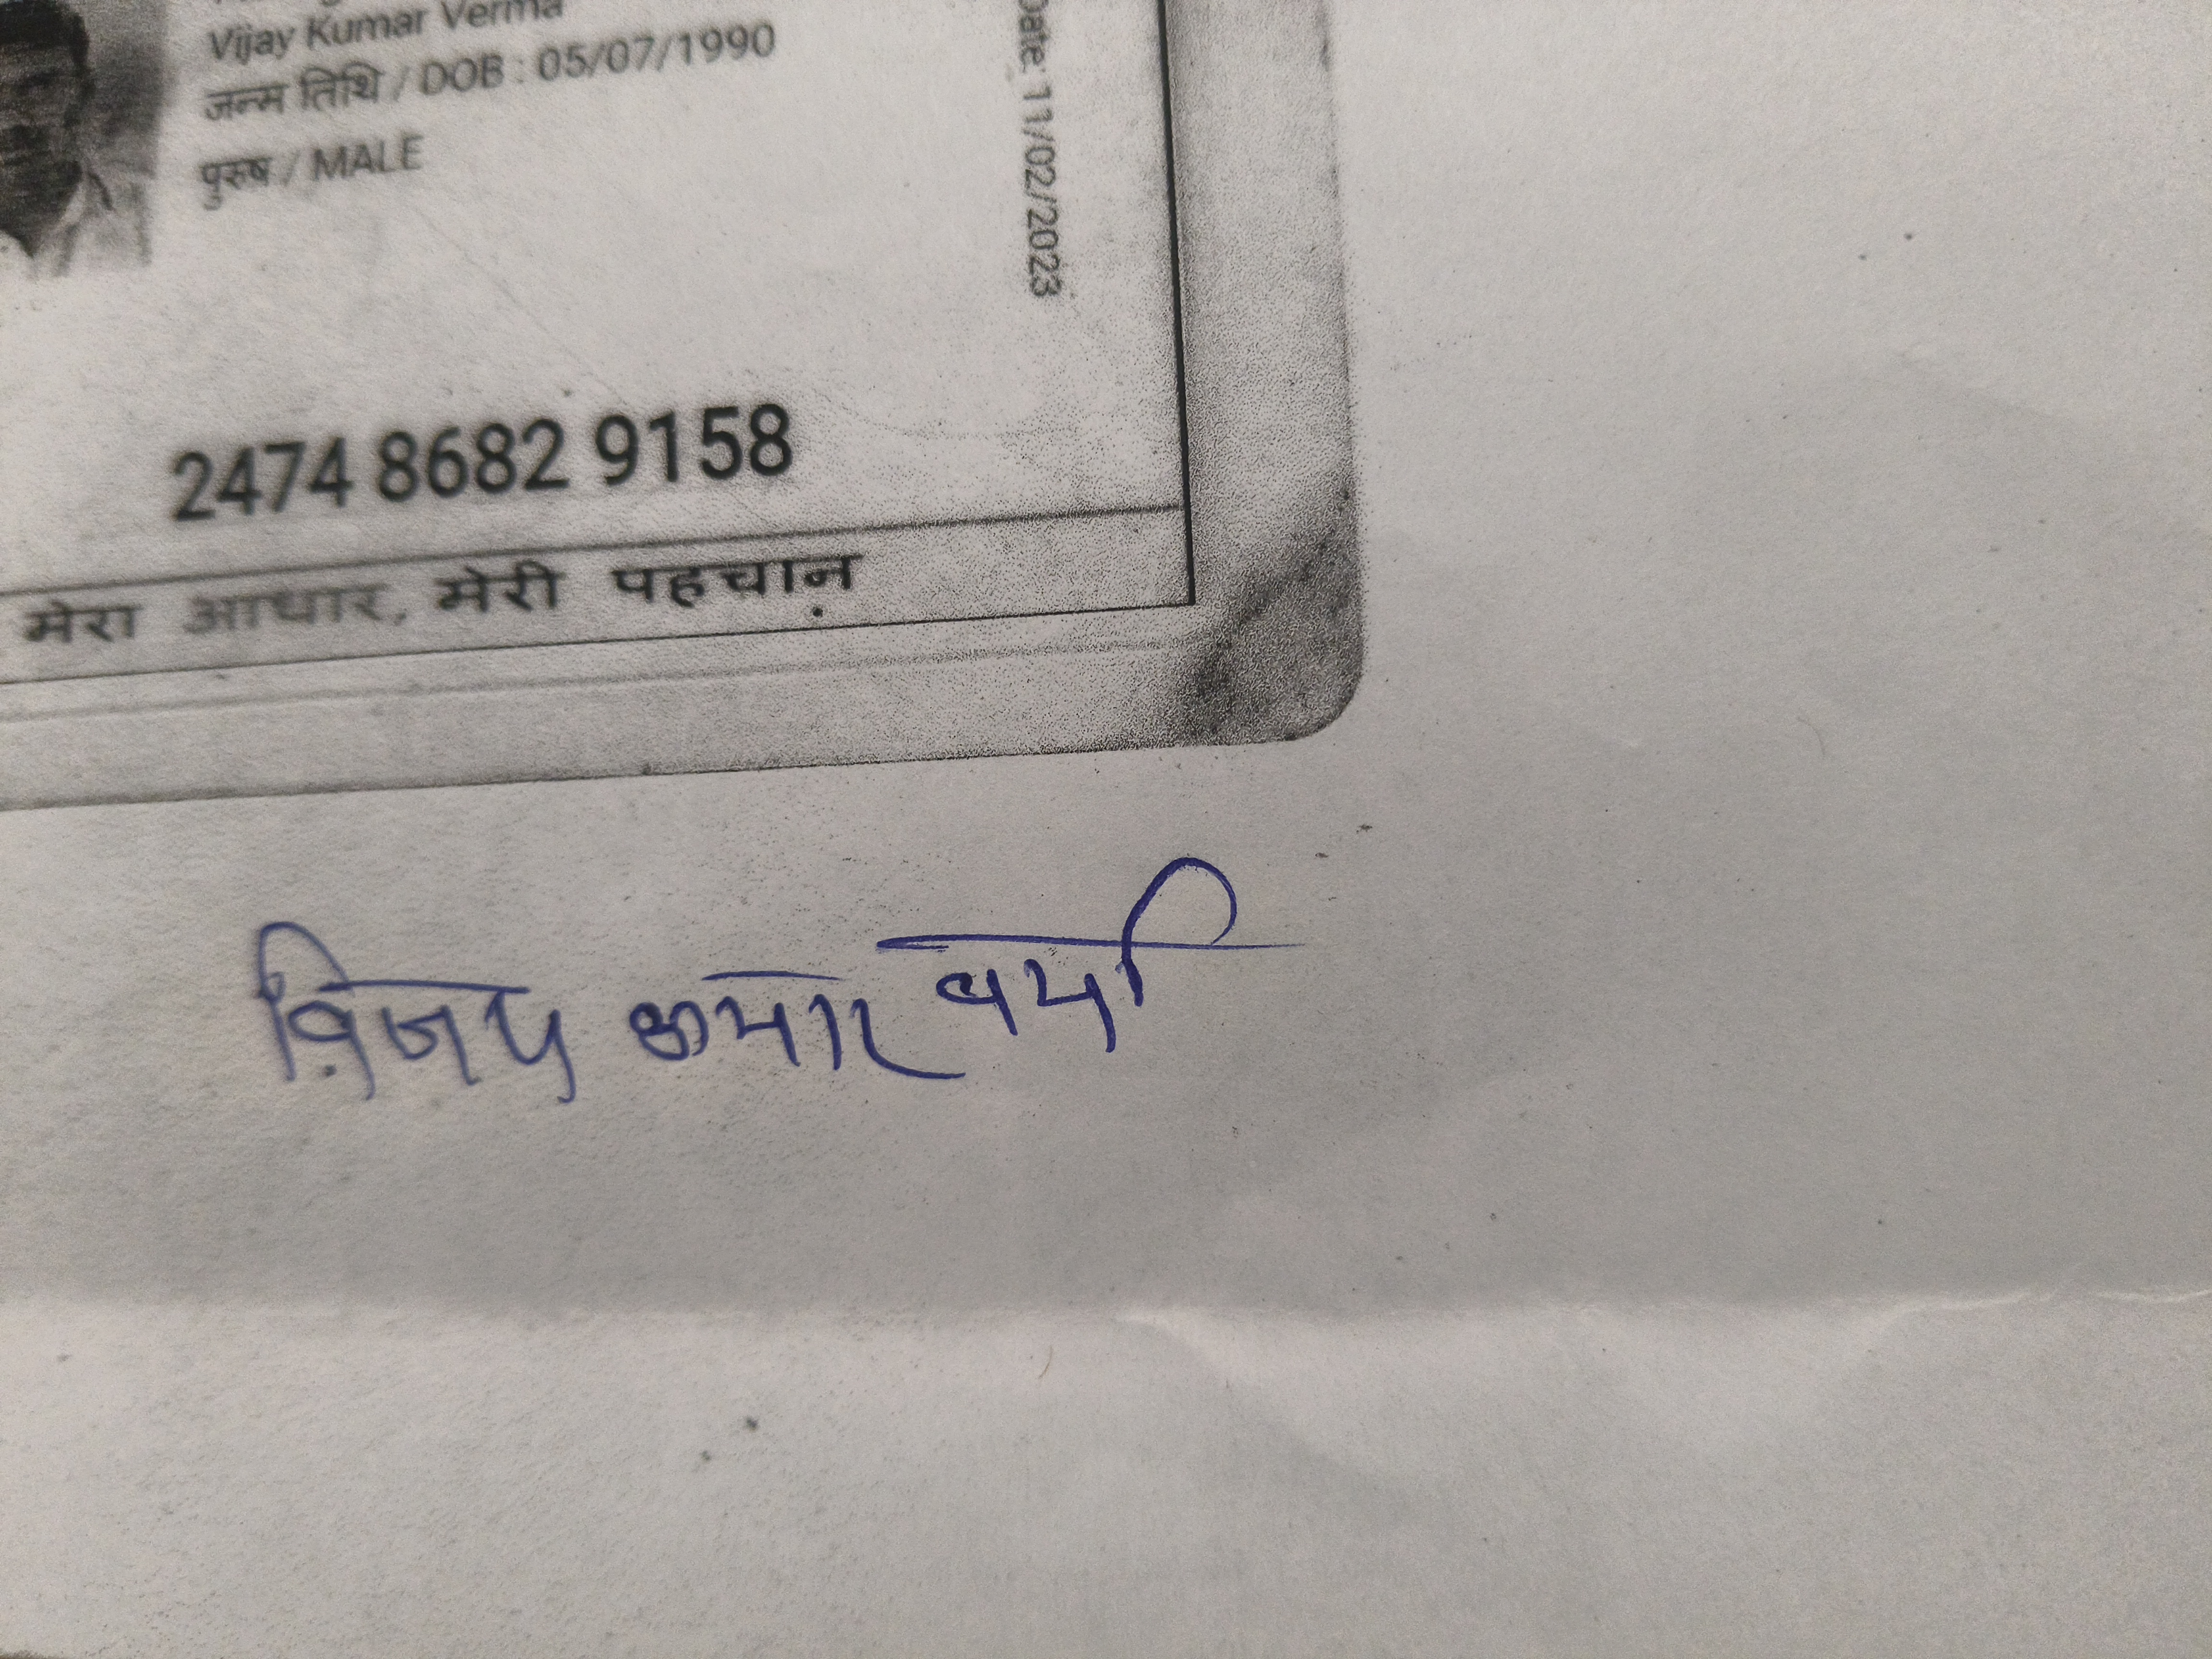 Vijay Kumar Verma
जन्म तिथि / DOB : 05/07/1990
पुरुष / MALE
Date: 11/02/2023
2474 8682 9158
मेरा आधार, मेरी पहचान
विजय कुमार वर्मा